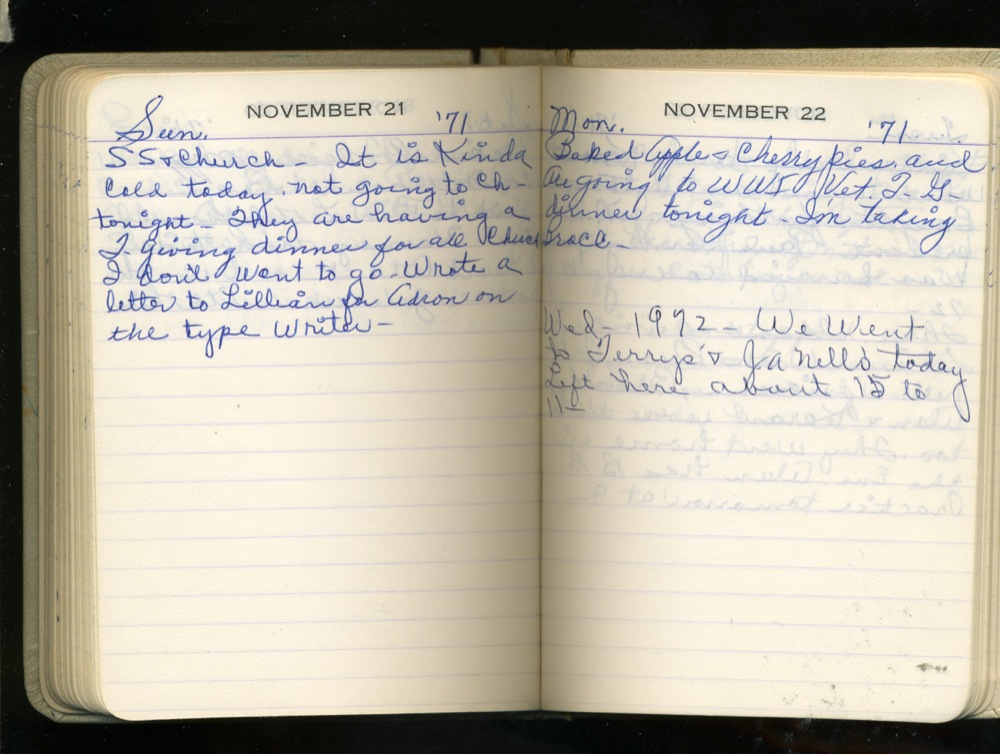 NOVEMBER 21
Sun. '71
SS & Church - It is Kinda
Cold today. not going to Ch -
tonight - They are having a
T. Giving dinner for all Church
I don't want to go. Wrote a
letter to Lillian for Adron on
the type writer -
NOVEMBER 22
Mon. '71
Baked Apple & Cherry Pies. and
are going to WWI Vet. T. G-
dinner tonight - I'm taking
Wed - 1972 - We Went
to Terrys & Ja Nell's today
Left here about 15 to
11 -